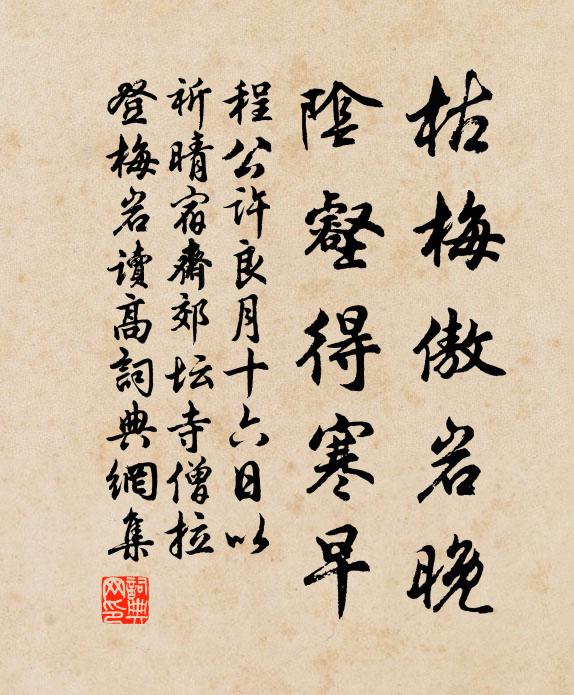 枯梅傲岩晚
陰壑得寒早
程公許良月十六日以
祈晴宿齋郊坛寺僧拉
登梅岩讀高詞典網集
詞典
网印